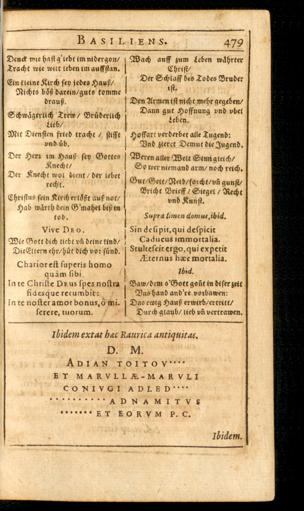 BASILIENS. 479
Denck wie hast g'lebt im nidergon/
Tracht wie wilt leben im auffstan.
Ein kleine Kirch sey jedes Hauß/
Nichts böß darein/guts komme
drauß.
Schwägerlich Trew/ Brüderlich
Lieb/
Mit Diensten fried tracht / stifft
und üb.
Der Herr im Hauß sey Gottes
Knecht/
Der Knecht wol dient/ der lebet
recht.
Christus sein Kirch erlößt auß not/
Hab wärth dein G'mahel biß in
tod.
Vive DEO.
Wie Gott dich liebt vñ deine kind/
Die Eltern ehr/hüt dich vor sünd.
Charior est superis homo
quàm sibi.
In te Christe DEUS spes nostra
fidesque recumbit.
In te noster amor bonus, ô mi-
serere, tuorum.
Wach auff zum Leben währter
Christ/
Der Schlaff des Todes Bruder
ist.
Den Armen ist nicht mehr gegeben/
Dann gut Hoffnung und übel
Leben.
Hoffart verderbet alle Tugend:
Und zieret Demut die Jugend.
Weren aller Welt Sinn gleich/
So wer niemand arm/ noch reich.
Supra limen domus, ibid.
Sin despit, qui despicit
Caducus immortalia.
Stultescit ergo, qui expetit
Æternus hæc mortalia.
Ibid.
Ibidem extat hæc Raurica antiquitas.
D. M.
ADIAN TOITOV····
ET MARVLLÆ-MARVLI
CONIVGI ADLED····
·········· ADNAMITVS
······· ET EORVM P. C.
Ibidem.